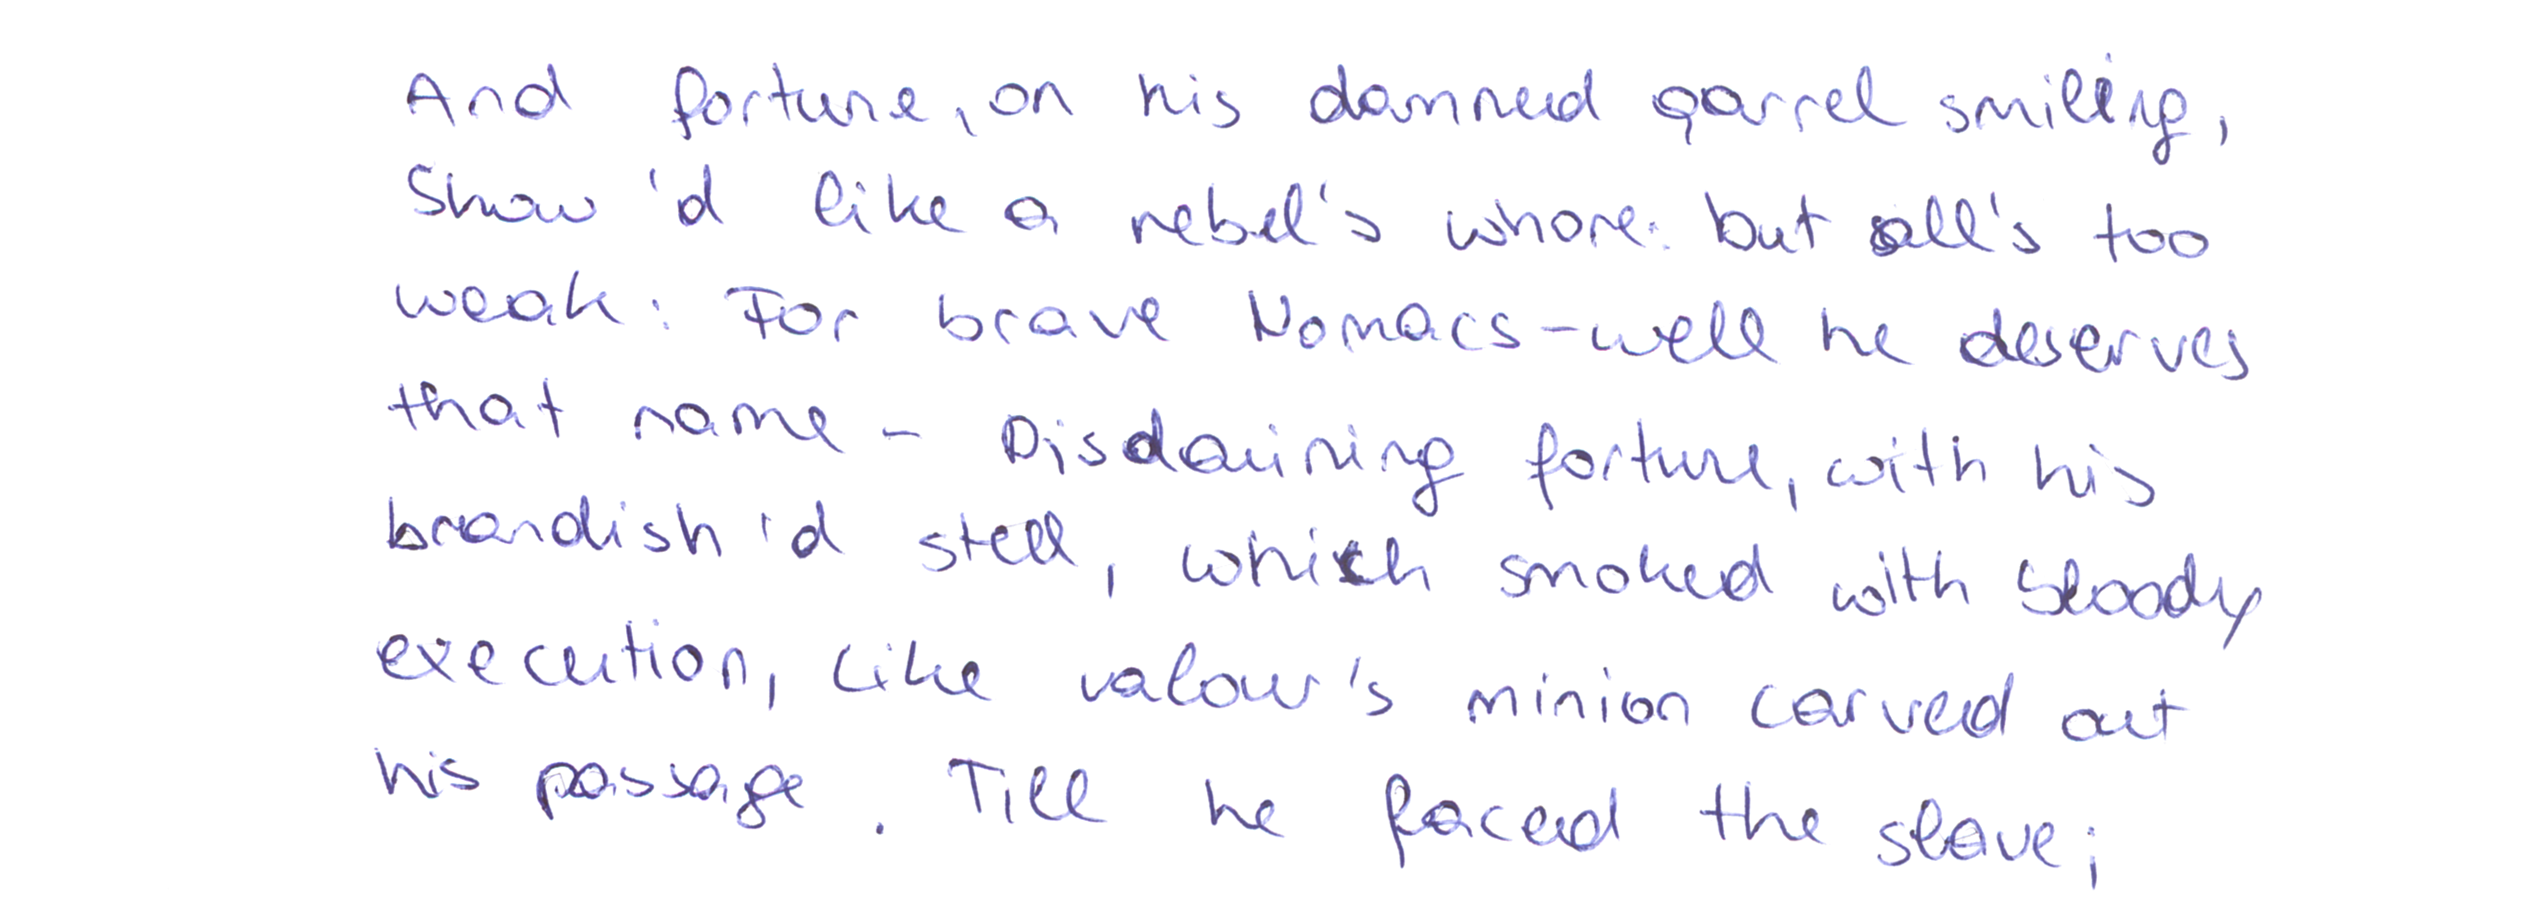 And fortune, on his damned qarrel smiling,
Show'd like a rebel's whore: but all's too
weak: For brave Nomacs-well he deserves
that name - Disdaining fortune, with his
brandish'd steel, which smoked with bloody
execution, Like valour's minion carved out
his passage. Till he faced the slave;